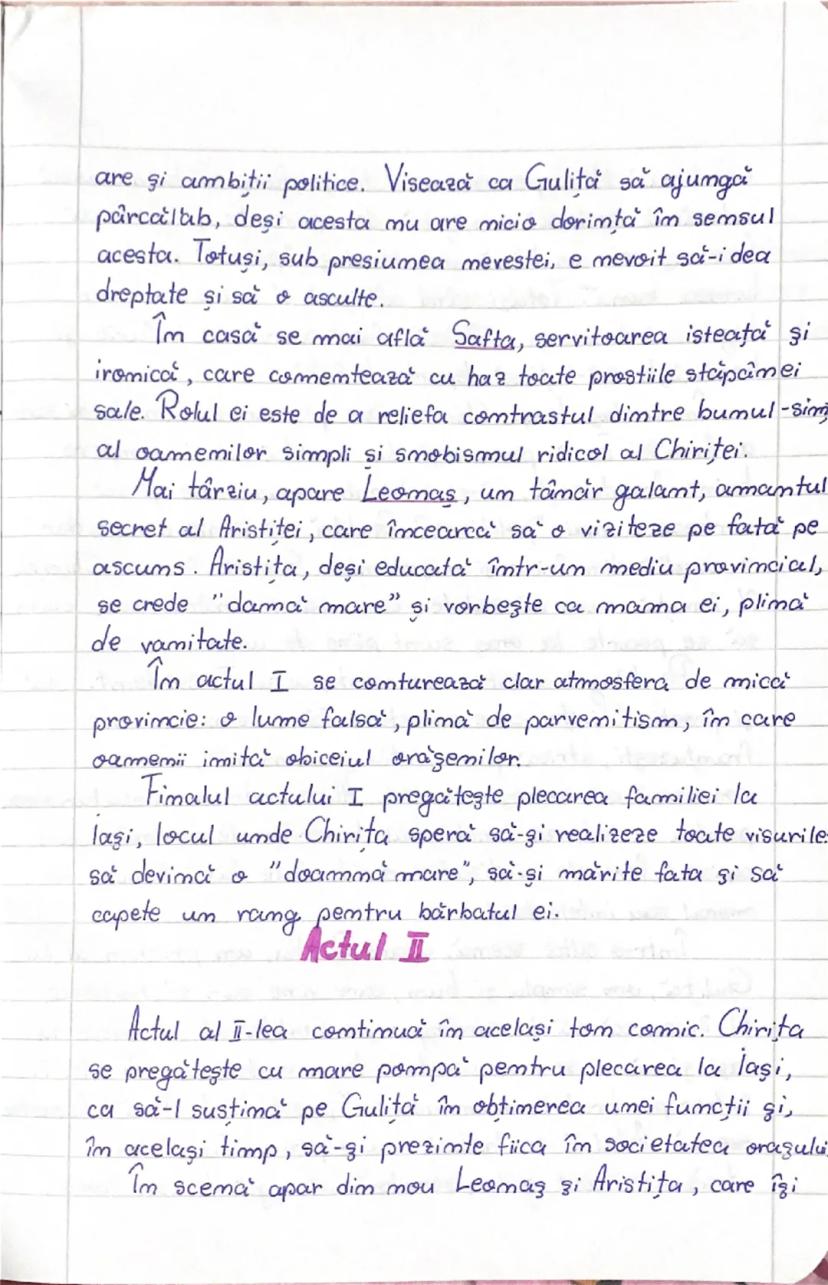 are și ambiții politice. Visează ca Guliță să ajungă
pârcălab, deși acesta nu are nicio dorință în sensul
acesta. Totuși, sub presiunea nevestei, e nevoit să-i dea
dreptate și să o asculte.
În casă se mai află Safta, servitoarea isteață și
ironică, care comentează cu haz toate prostiile stăpânei
sale. Rolul ei este de a reliefa contrastul dintre bunul-simț
al oamenilor simpli și snobismul ridicol al Chiriței.
Mai târziu, apare Leonaș, un tânăr galant, amantul
secret al Aristiței, care încearcă să o viziteze pe fată pe
ascuns. Aristița, deși educată într-un mediu provincial,
se crede "damă mare" și vorbește ca mama ei, plină
de vanitate.
În actul I se conturează clar atmosfera de mică
provincie: o lume falsă, plină de parvenitism, în care
oamenii imită obiceiul orășenilor.
Finalul actului I pregătește plecarea familiei la
Iași, locul unde Chirița speră să-și realizeze toate visurile:
să devină o "doamnă mare", să-și mărite fata și să
capete un rang pentru bărbatul ei.
Actul II
Actul al II-lea continuă în același ton comic. Chirița
se pregătește cu mare pompă pentru plecarea la Iași,
ca să-l susțină pe Guliță în obținerea unei funcții și,
în același timp, să-și prezinte fiica în societatea orașului
În scenă apar din nou Leonaș și Aristița, care își